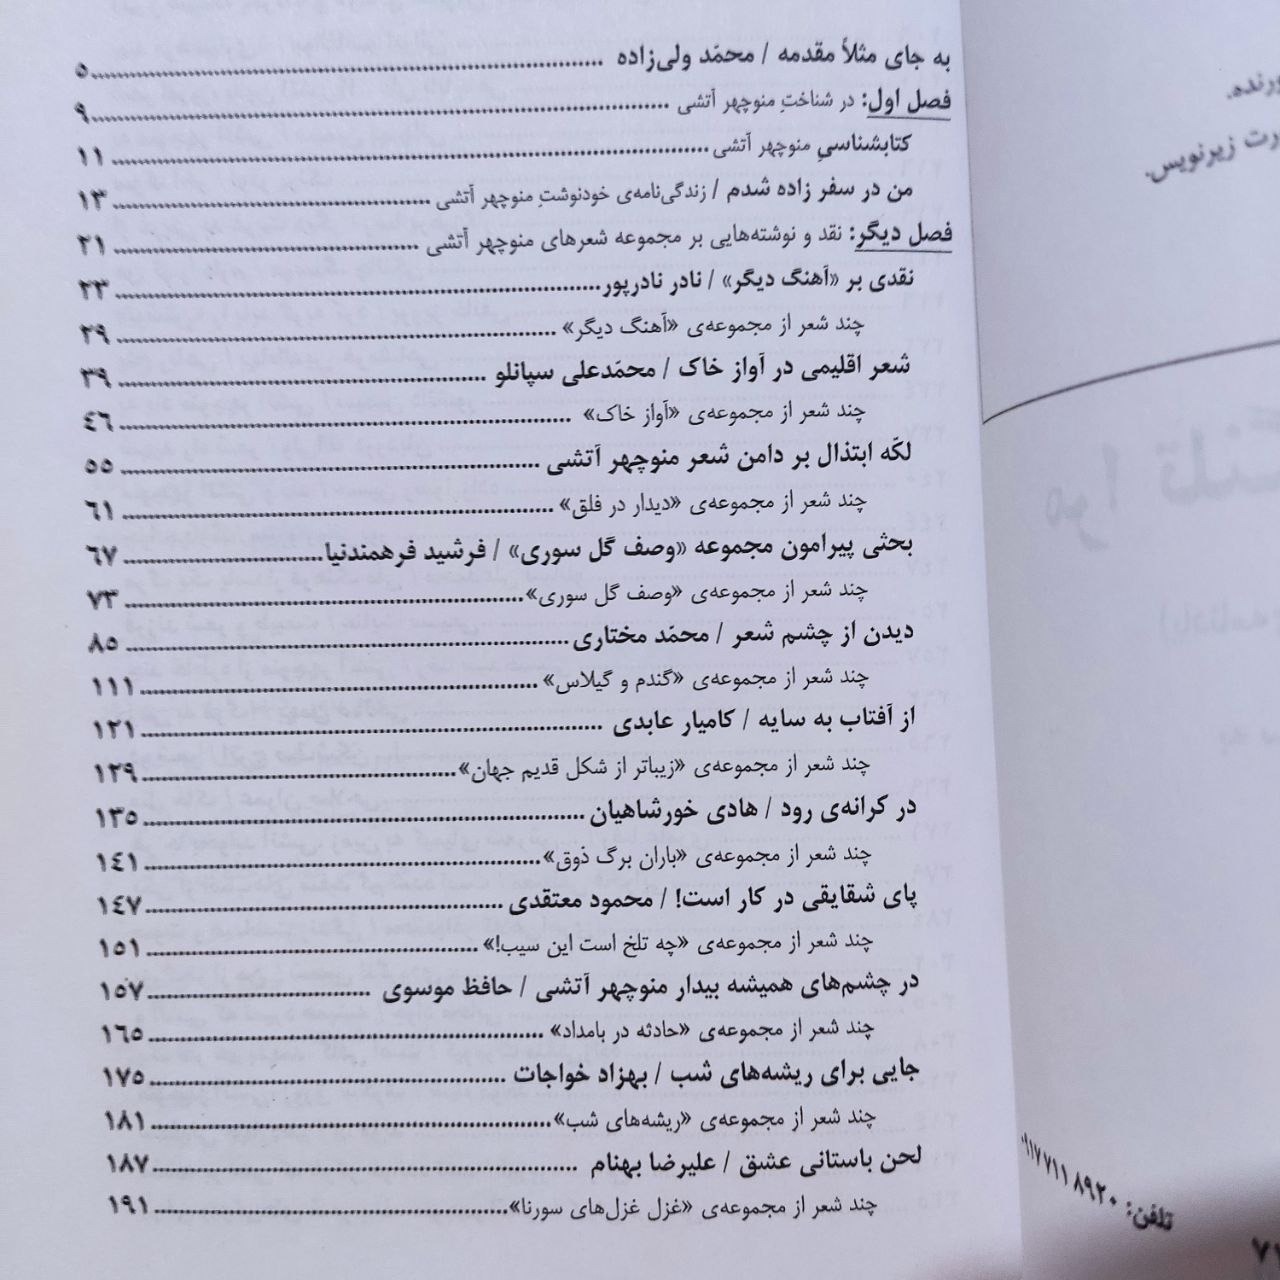 به جای مثلاً مقدمه / محمّد ولی‌زاده ........ ۵
فصل اول: در شناختِ منوچهر آتشی ........ ۹
کتابشناسیِ منوچهر آتشی ........ ۱۱
من در سفر زاده شدم / زندگی‌نامه‌ی خودنوشتِ منوچهر آتشی ........ ۱۳
فصل دیگر: نقد و نوشته‌هایی بر مجموعه شعرهای منوچهر آتشی ........ ۲۱
نقدی بر «آهنگ دیگر» / نادر نادرپور ........ ۲۳
چند شعر از مجموعه‌ی «آهنگ دیگر» ........ ۲۹
شعر اقلیمی در آواز خاک / محمّدعلی سپانلو ........ ۳۹
چند شعر از مجموعه‌ی «آواز خاک» ........ ۴۶
لکّه ابتذال بر دامن شعر منوچهر آتشی ........ ۵۵
چند شعر از مجموعه‌ی «دیدار در فلق» ........ ۶۱
بحثی پیرامون مجموعه «وصف گل سوری» / فرشید فرهمندنیا ........ ۶۷
چند شعر از مجموعه‌ی «وصف گل سوری» ........ ۷۳
دیدن از چشم شعر / محمّد مختاری ........ ۸۵
چند شعر از مجموعه‌ی «گندم و گیلاس» ........ ۱۱۱
از آفتاب به سایه / کامیار عابدی ........ ۱۲۱
چند شعر از مجموعه‌ی «زیباتر از شکل قدیم جهان» ........ ۱۲۹
در کرانه‌ی رود / هادی خورشاهیان ........ ۱۳۵
چند شعر از مجموعه‌ی «باران برگ ذوق» ........ ۱۴۱
پای شقایقی در کار است! / محمود معتقدی ........ ۱۴۷
چند شعر از مجموعه‌ی «چه تلخ است این سیب!» ........ ۱۵۱
در چشم‌های همیشه بیدار منوچهر آتشی / حافظ موسوی ........ ۱۵۷
چند شعر از مجموعه‌ی «حادثه در بامداد» ........ ۱۶۵
جایی برای ریشه‌های شب / بهزاد خواجات ........ ۱۷۵
چند شعر از مجموعه‌ی «ریشه‌های شب» ........ ۱۸۱
لحن باستانی عشق / علیرضا بهنام ........ ۱۸۷
چند شعر از مجموعه‌ی «غزل غزل‌های سورنا» ........ ۱۹۱
زیرنویس.
تلفن: